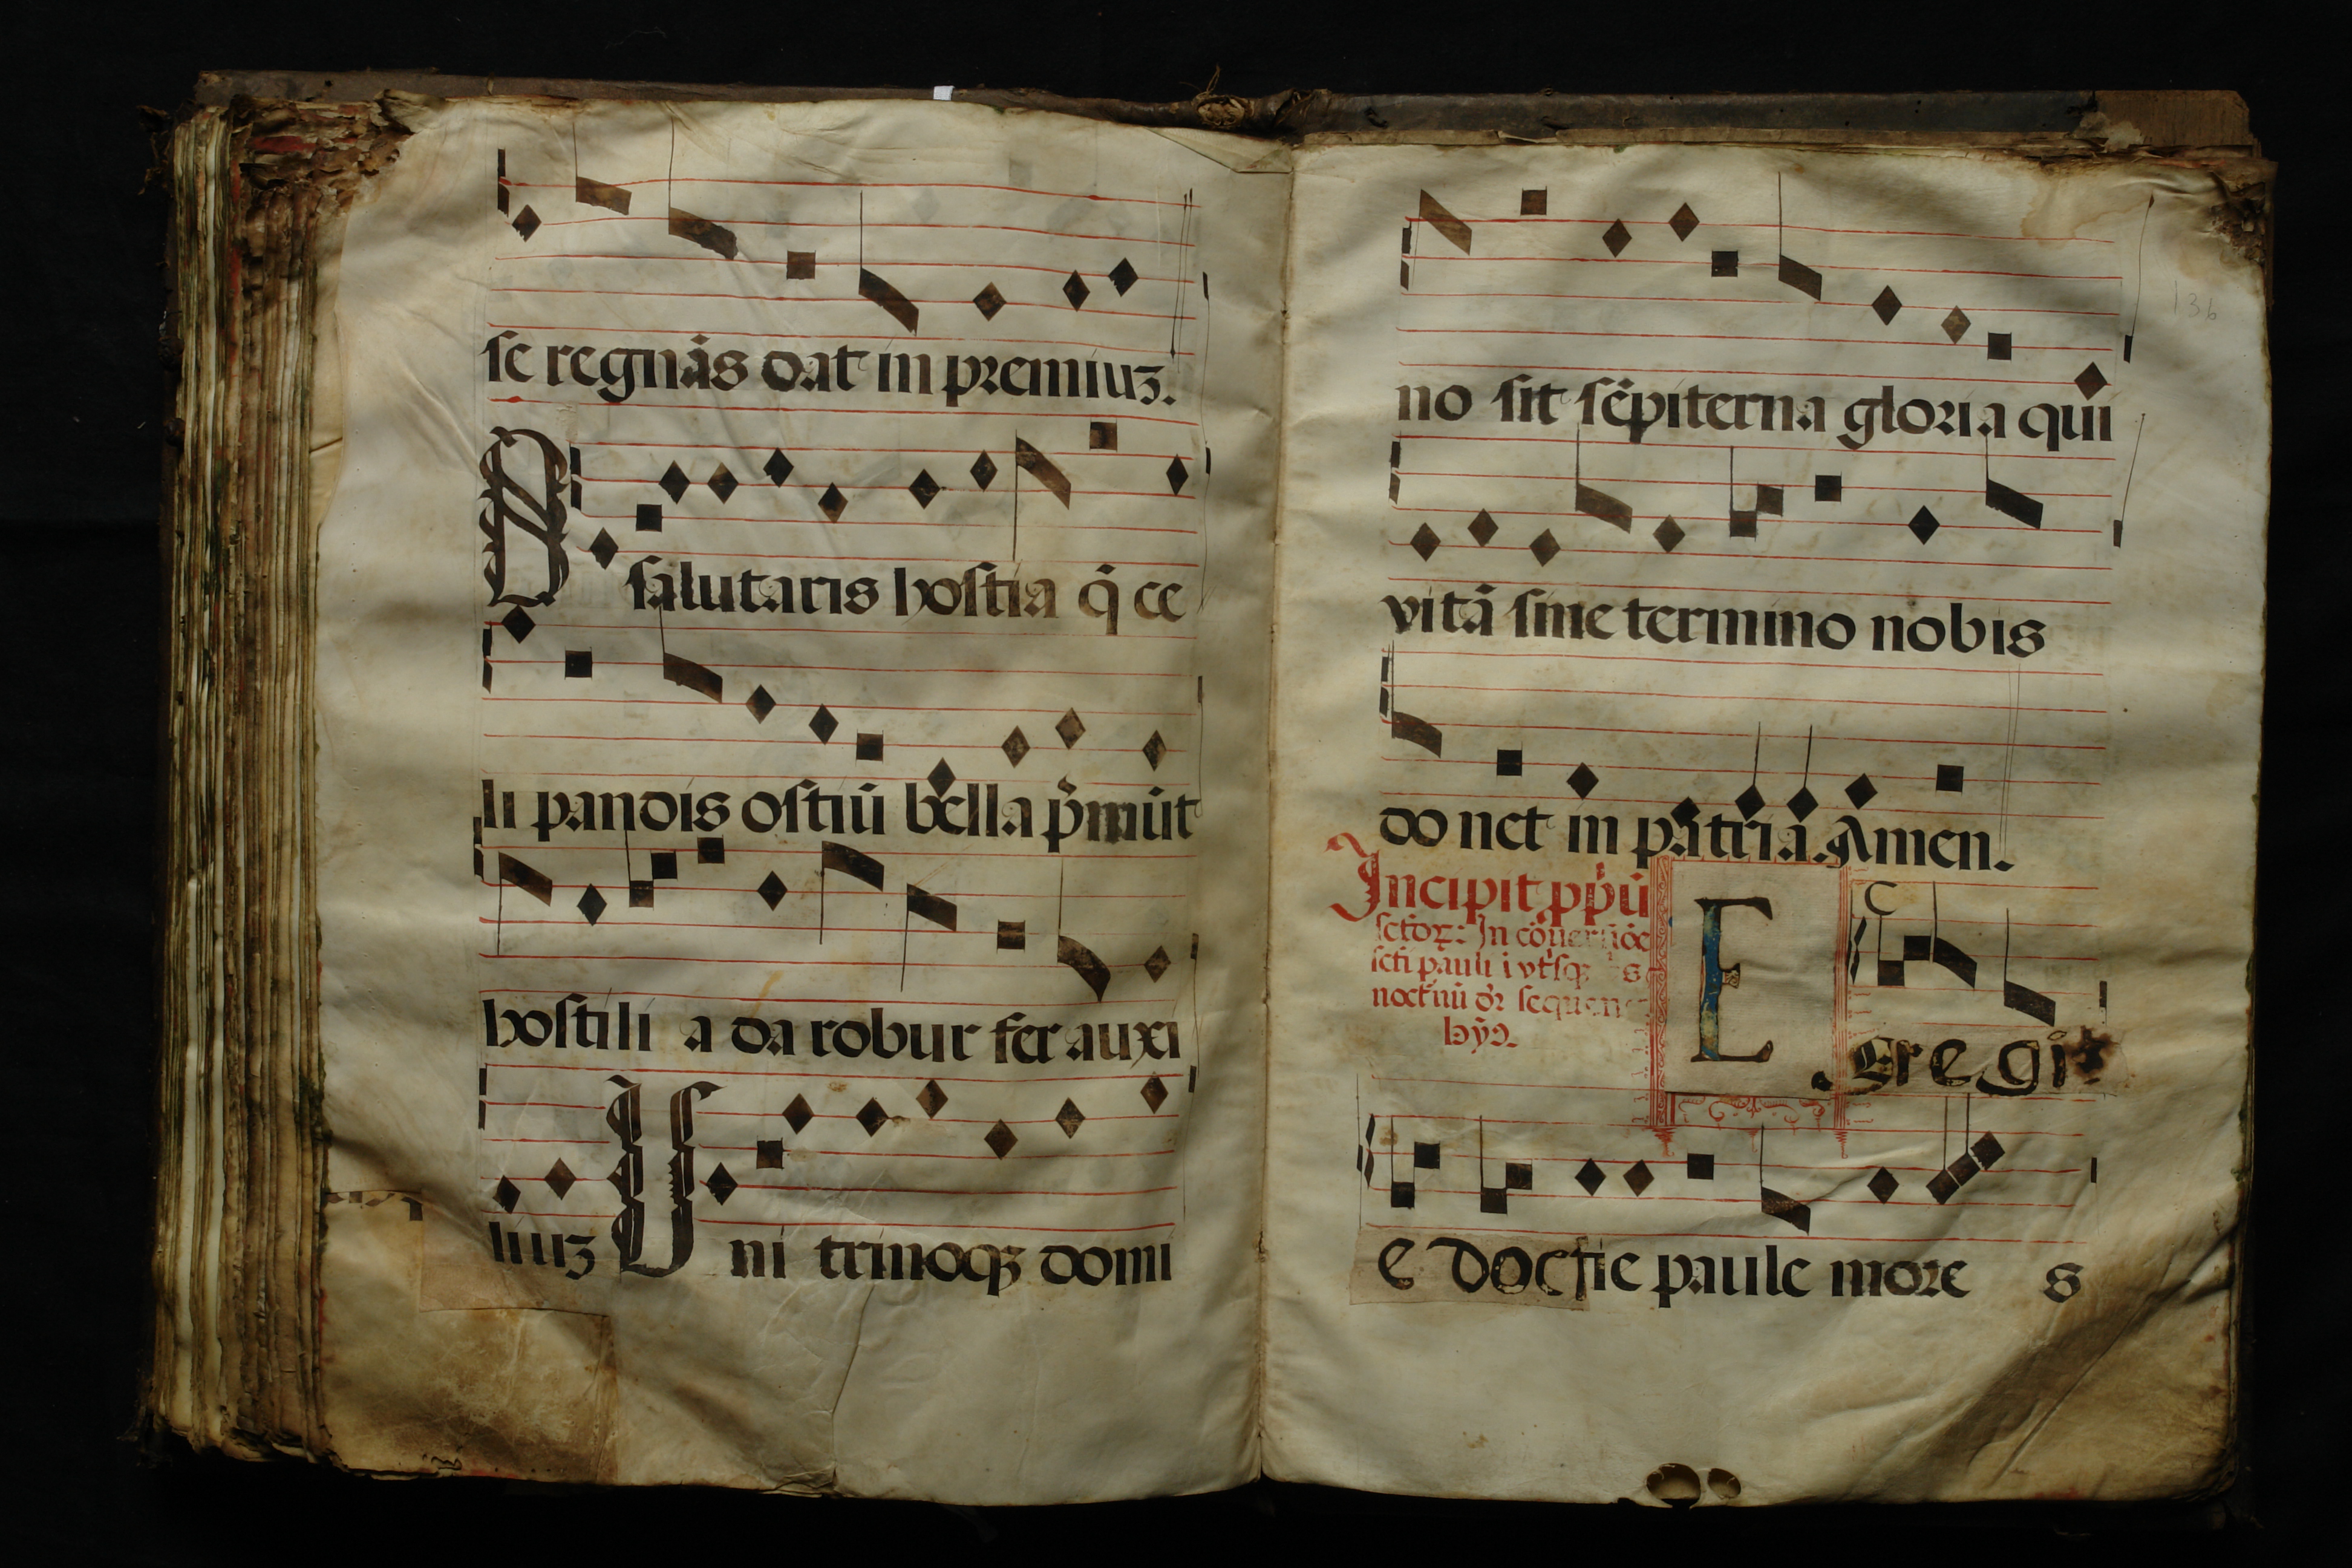 se regnãs dat in premiuʒ.
O salutaris hostia q̃ ce
li pandis ostiũ bella p̃mũt
hostili a da robur fer auxi
liuʒ Uni trinoqʒ domi
136
no sit sẽpiterna gloria qui
vitã sine termino nobis
do net in patria. Amen.
Incipit pp̃ũ
sctõꝝ: In cõuersiõe
scti pauli i vtʳsqʒ s
noctʳnũ dʳ sequen
hỹ9.
E gregi
e doctie paule more s